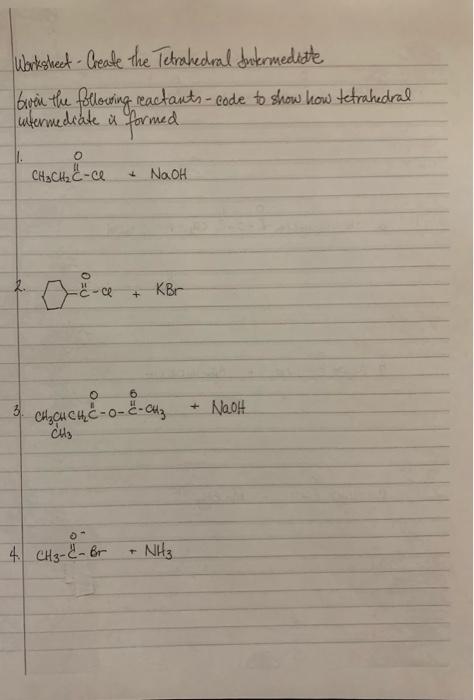 Worksheet - Create the Tetrahedral Intermediate
Given the following reactants - code to show how tetrahedral
intermediate is formed
1.
O
CH3CH2C-Cl + NaOH
2.
O
C-Cl + KBr
3.
O O
CH3CHCH2C-O-C-CH3 + NaOH
CH3
4.
O-
CH3-C-Br + NH3